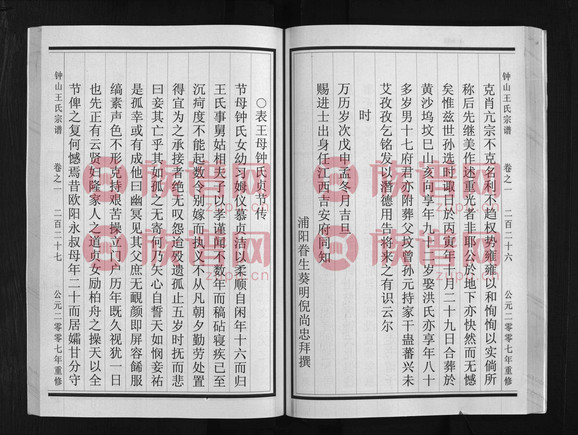 钟山王氏宗谱
卷之一
二百二十六
公元二零零七年重修
克肖亢宗不克名利不趋权势雍雍以和恂恂以实倘所
称后先继美作述重光者非耶公於地下亦快然而无憾
矣惟兹世孙选时诹日於丙寅年十月二十九日合葬於
黄沙坞坟巳山亥向享年九十一岁娶洪氏亦享年八十
多岁男十七府君亦附葬父坟曾孙元持家干蛊蕃兴未
艾孜孜乞铭发以潜德用告将来之有识云尔
时
万历岁次戊申孟冬月吉旦
赐进士出身任江西吉安府同知
浦阳眷生葵明倪尚忠拜撰
〇表王母钟氏贞节传
节母钟氏女幼习姆仪慕贞洁以柔顺自闲年十六而归
王氏事舅姑相夫子以孝谨闻不数年而稿砧寝疾已至
沉疴度不能起数令别嫁而执文不从凡朝夕勤劳处置
得宜为之承接者绝无叹怨迨殁遗孤止五岁时抚而悲
曰妾其亡乎其如孤之无寄何乃矢心自誓天如悯妾祐
是孤幸或有成他曰幽冥见其父庶无觍颜即屏容餙服
缟素声色不形克持艰苦操立门户历年既久视犹一日
也先正有云贤妇隆家人之道贞女励柏舟之操天以全
节俾之复何憾焉昔欧阳永叔母年二十而居孀甘分守
钟山王氏宗谱
卷之一
二百二十七
公元二零零七年重修
族谱网
zupu.cn
族谱网
zupu.cn